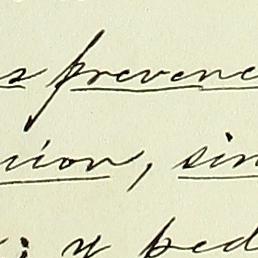 s prevene
nion, sin
; y ped